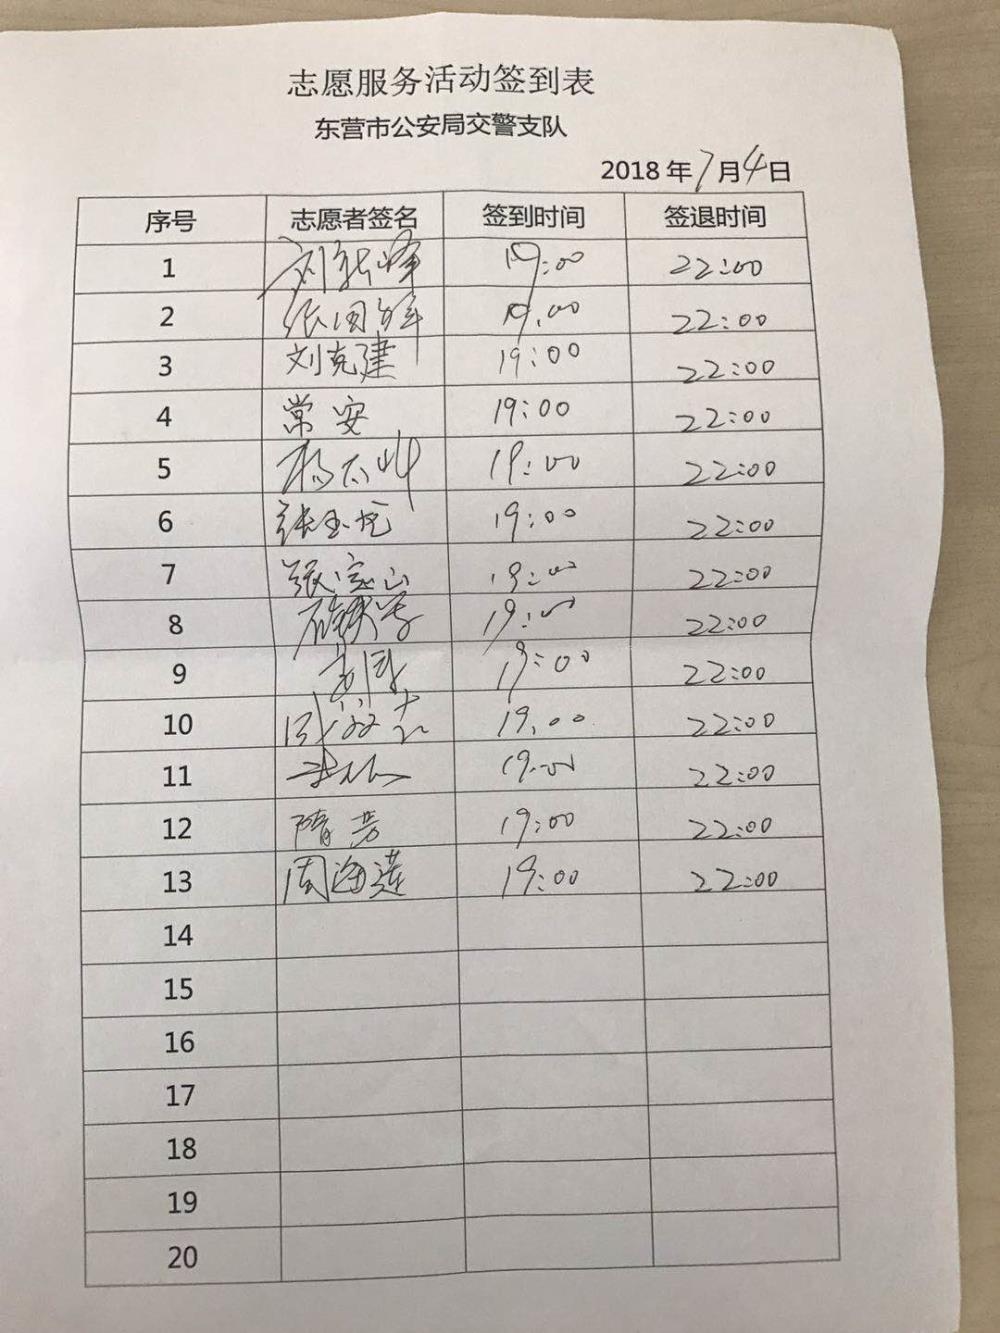 志愿服务活动签到表
东营市公安局交警支队
2018 年 7 月 4 日
序号 志愿者签名 签到时间 签退时间
1 19:00 22:00
2 张国 19:00 22:00
3 刘克建 19:00 22:00
4 常安 19:00 22:00
5 杨 19:00 22:00
6 张玉龙 19:00 22:00
7 张宝山 19:00 22:00
8 19:00 22:00
9 19:00 22:00
10 19:00 22:00
11 19:00 22:00
12 隋芳 19:00 22:00
13 周海莲 19:00 22:00
14
15
16
17
18
19
20